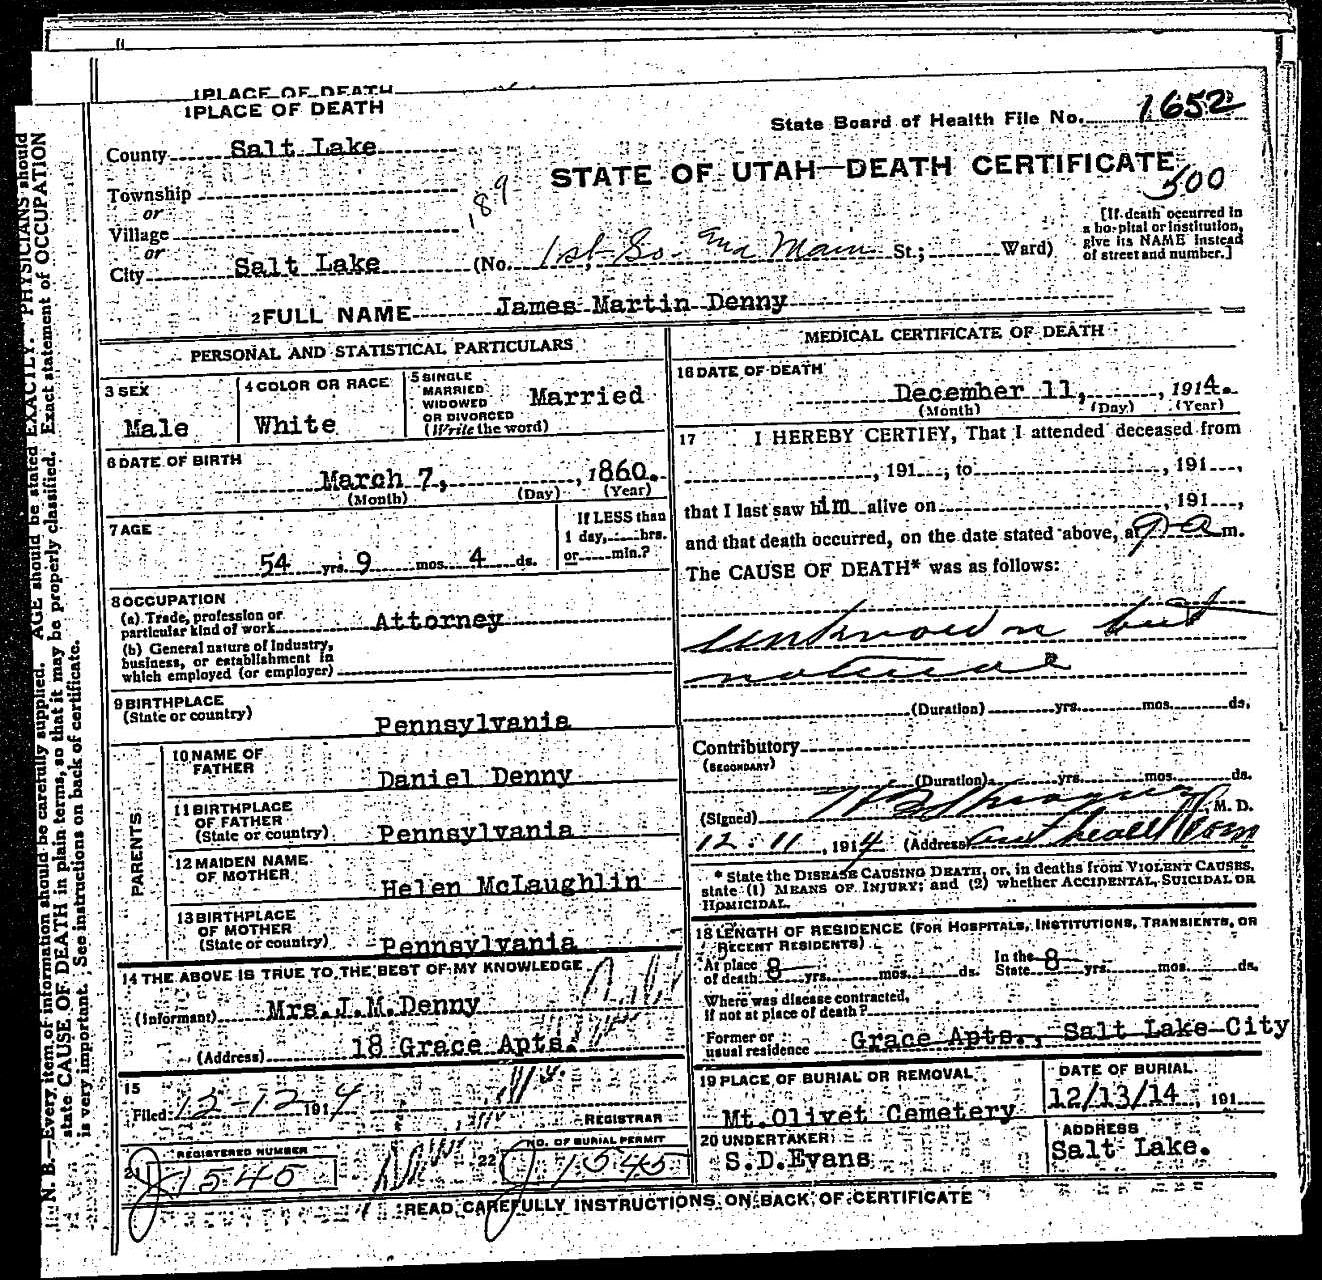 1 PLACE OF DEATH
1 PLACE OF DEATH
State Board of Health File No. 1652
County Salt Lake
STATE OF UTAH—DEATH CERTIFICATE
500
Township
or
189
Village
or
City Salt Lake (No. 1st So. and Main St.; Ward)
[If death occurred in
a hospital or institution,
give its NAME instead
of street and number.]
2 FULL NAME James Martin Denny
PERSONAL AND STATISTICAL PARTICULARS
3 SEX
Male
4 COLOR OR RACE
White
5 SINGLE
MARRIED
WIDOWED
OR DIVORCED
(Write the word)
Married
6 DATE OF BIRTH
March 7, , 1860.
(Month) (Day) (Year)
7 AGE
54 yrs. 9 mos. 4 ds.
If LESS than
1 day, hrs.
or min.?
8 OCCUPATION
(a) Trade, profession or
particular kind of work Attorney
(b) General nature of Industry,
business, or establishment in
which employed (or employer)
9 BIRTHPLACE
(State or country)
Pennsylvania
PARENTS
10 NAME OF
FATHER
Daniel Denny
11 BIRTHPLACE
OF FATHER
(State or country) Pennsylvania
12 MAIDEN NAME
OF MOTHER
Helen McLaughlin
13 BIRTHPLACE
OF MOTHER
(State or country) Pennsylvania
14 THE ABOVE IS TRUE TO THE BEST OF MY KNOWLEDGE
(Informant) Mrs. J.M. Denny
(Address) 18 Grace Apts.
15
Filed 12-12 1914
REGISTRAR
REGISTERED NUMBER
21 J 1545
NO. OF BURIAL PERMIT
22 J 1545
MEDICAL CERTIFICATE OF DEATH
16 DATE OF DEATH
December 11, , 1914.
(Month) (Day) (Year)
17 I HEREBY CERTIFY, That I attended deceased from
, 191 , to , 191 ,
that I last saw him alive on , 191 ,
and that death occurred, on the date stated above, at 9 a m.
The CAUSE OF DEATH* was as follows:
unknown but
natural
(Duration) yrs. mos. ds.
Contributory
(SECONDARY)
(Duration) yrs. mos. ds.
(Signed) M. D.
12-11, 1914 (Address)
* State the DISEASE CAUSING DEATH, or, in deaths from VIOLENT CAUSES,
state (1) MEANS OF INJURY; and (2) whether ACCIDENTAL, SUICIDAL OR
HOMICIDAL.
18 LENGTH OF RESIDENCE (FOR HOSPITALS, INSTITUTIONS, TRANSIENTS, OR
RECENT RESIDENTS)
At place
of death 8 yrs. mos. ds.
In the
State 8 yrs. mos. ds.
Where was disease contracted,
if not at place of death?
Former or
usual residence Grace Apts., Salt Lake City
19 PLACE OF BURIAL OR REMOVAL
Mt. Olivet Cemetery
DATE OF BURIAL
12/13/14 , 191
20 UNDERTAKER
S.D. Evans
ADDRESS
Salt Lake.
READ CAREFULLY INSTRUCTIONS ON BACK OF CERTIFICATE
N. B.—Every item of information should be carefully supplied. AGE should be stated EXACTLY. PHYSICIANS should
state CAUSE OF DEATH in plain terms, so that it may be properly classified. Exact statement of OCCUPATION
is very important. See instructions on back of certificate.